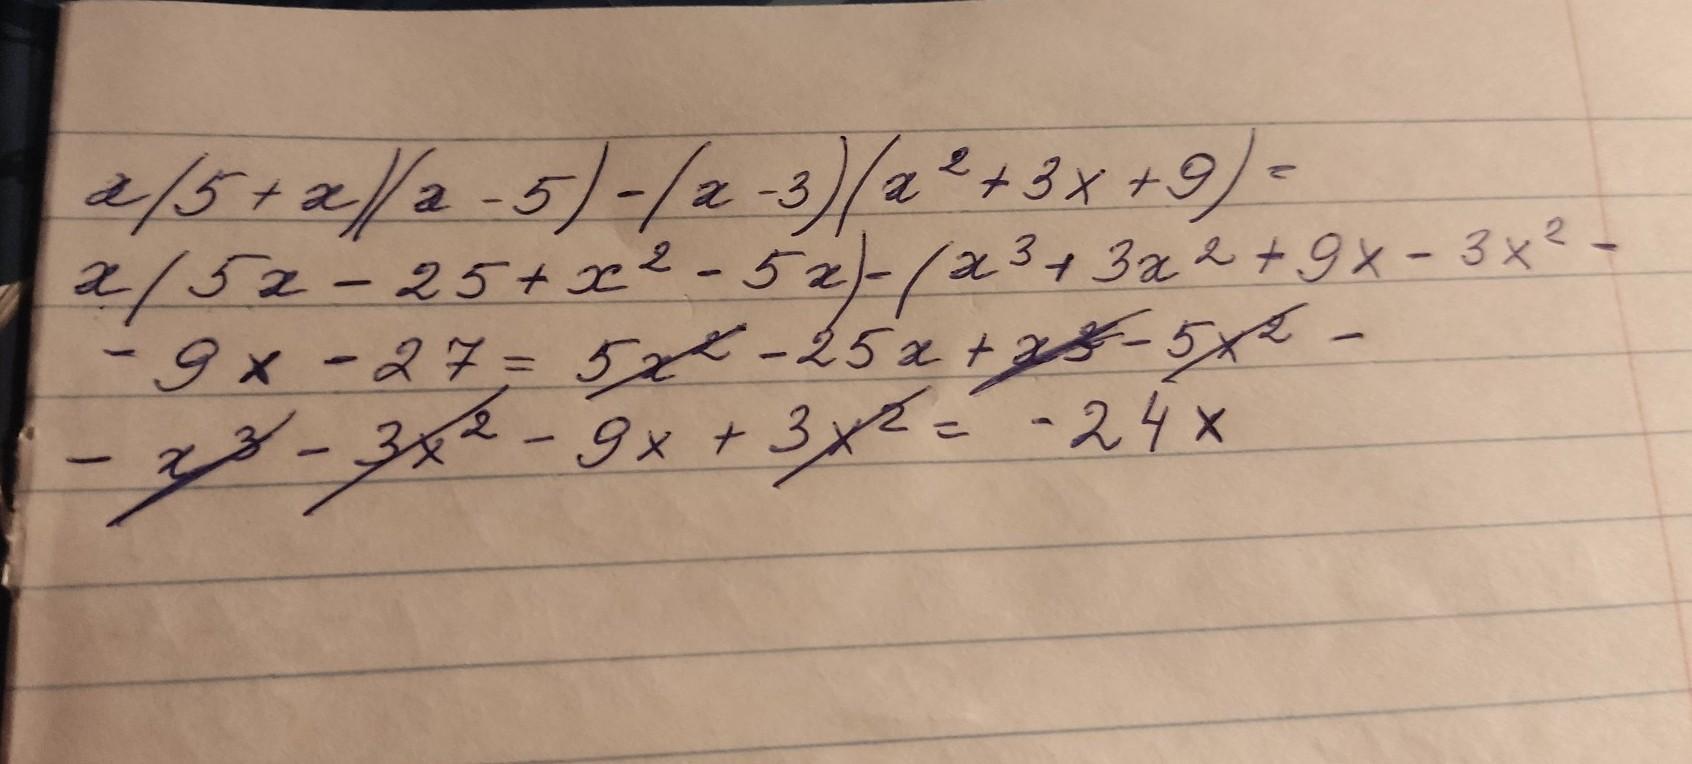 x(5+x)(x-5)-(x-3)(x²+3x+9)=
x(5x-25+x²-5x)-(x³+3x²+9x-3x²-
-9x-27=5x²-25x+x³-5x²-
-x³-3x²-9x+3x²=-24x